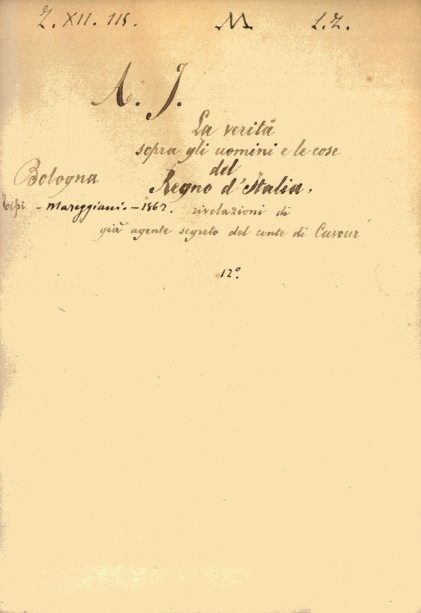 Z. XII. 115. M L.Z.
A. J.
La verità
sopra gli uomini e le cose
del
Bologna Regno d'Italia.
Tipi - Mareggiani. - 1862. rivelazioni di
già agente segreto del conte di Cavour
12º